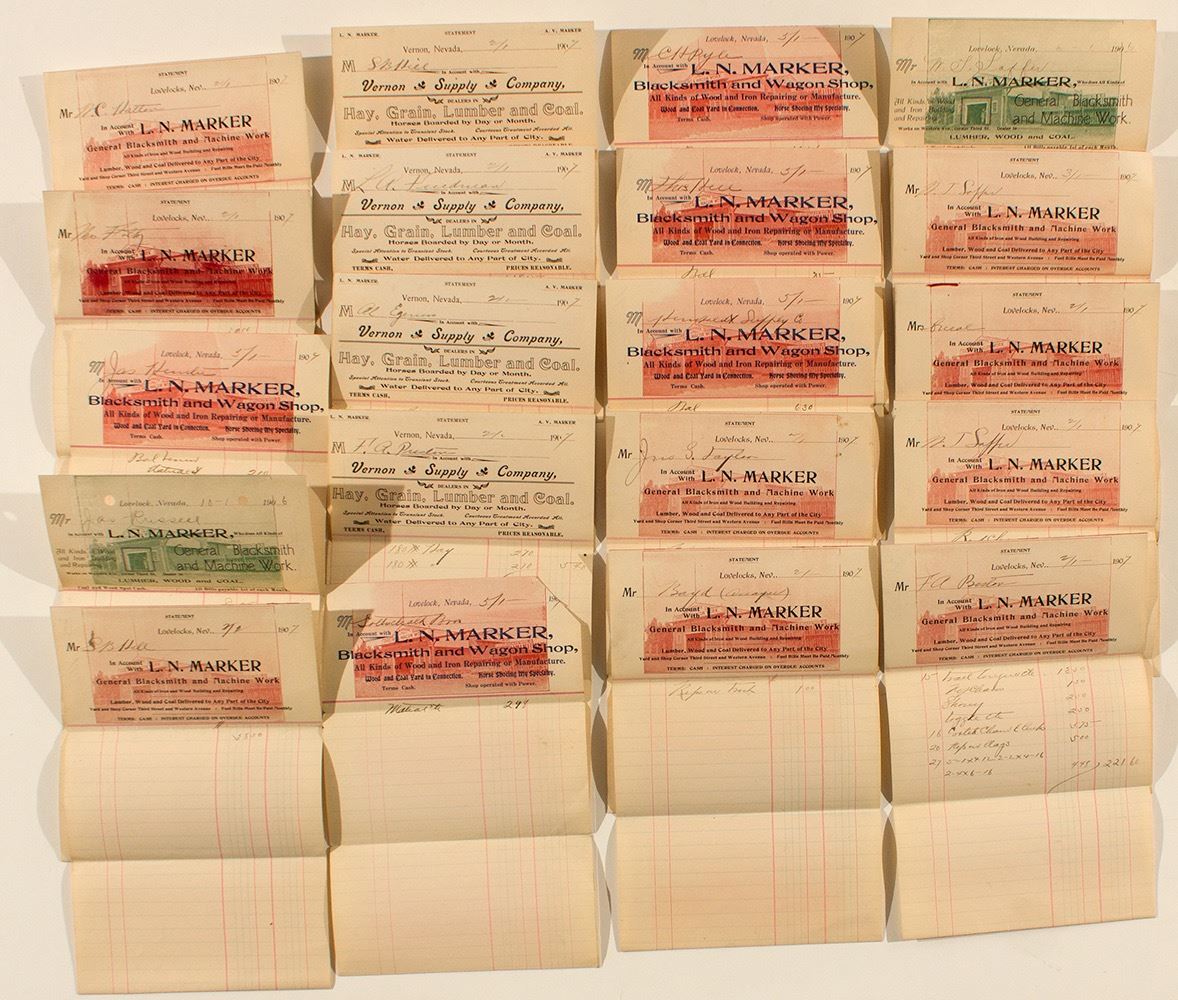 STATEMENT
Lovelocks, Nev. 2/1 1907
Mr
In Account With L. N. MARKER
General Blacksmith and Machine Work
All Kinds of Iron and Wood Building and Repairing
Lumber, Wood and Coal Delivered to Any Part of the City
Yard and Shop Corner Third Street and Western Avenue : Fuel Bills Must Be Paid Monthly
TERMS: CASH : INTEREST CHARGED ON OVERDUE ACCOUNTS
STATEMENT
Lovelocks, Nev. 2/1 1907
Mr
In Account With L. N. MARKER
General Blacksmith and Machine Work
All Kinds of Iron and Wood Building and Repairing
Lumber, Wood and Coal Delivered to Any Part of the City
Yard and Shop Corner Third Street and Western Avenue : Fuel Bills Must Be Paid Monthly
TERMS: CASH : INTEREST CHARGED ON OVERDUE ACCOUNTS
Lovelock, Nevada, 5/1 1907
M Jas
In Account with L. N. MARKER,
Blacksmith and Wagon Shop,
All Kinds of Wood and Iron Repairing or Manufacture.
Wood and Coal Yard in Connection. Horse Shoeing My Specialty.
Terms Cash. Shop operated with Power.
Bal
Lovelock, Nevada, 10-1 1906
Mr Jas Russell
In Account with L. N. MARKER, Who does All Kinds of
All Kinds of Wood and Iron Building and Repairing General Blacksmith and Machine Work.
LUMBER, WOOD and COAL.
Coal and Wood Spot Cash. All Bills payable 1st of each Month.
STATEMENT
Lovelocks, Nev. 2/1 1907
Mr S B Hill
In Account With L. N. MARKER
General Blacksmith and Machine Work
All Kinds of Iron and Wood Building and Repairing
Lumber, Wood and Coal Delivered to Any Part of the City
Yard and Shop Corner Third Street and Western Avenue : Fuel Bills Must Be Paid Monthly
TERMS: CASH : INTEREST CHARGED ON OVERDUE ACCOUNTS
L. N. MARKER. STATEMENT A. V. MARKER
Vernon, Nevada, 2/1 1907
M S B Hill
In Account with
Vernon Supply Company,
DEALERS IN
Hay, Grain, Lumber and Coal.
Horses Boarded by Day or Month.
Special Attention to Transient Stock. Courteous Treatment Accorded All.
Water Delivered to Any Part of City.
L. N. MARKER. STATEMENT A. V. MARKER
Vernon, Nevada, 2/1 1907
M
In Account with
Vernon Supply Company,
DEALERS IN
Hay, Grain, Lumber and Coal.
Horses Boarded by Day or Month.
Special Attention to Transient Stock. Courteous Treatment Accorded All.
Water Delivered to Any Part of City.
TERMS CASH. PRICES REASONABLE.
L. N. MARKER. STATEMENT A. V. MARKER
Vernon, Nevada, 2/1 1907
M
In Account with
Vernon Supply Company,
DEALERS IN
Hay, Grain, Lumber and Coal.
Horses Boarded by Day or Month.
Special Attention to Transient Stock. Courteous Treatment Accorded All.
Water Delivered to Any Part of City.
TERMS CASH. PRICES REASONABLE.
L. N. MARKER. STATEMENT A. V. MARKER
Vernon, Nevada, 1907
M F. A. Preston
In Account with
Vernon Supply Company,
DEALERS IN
Hay, Grain, Lumber and Coal.
Horses Boarded by Day or Month.
Special Attention to Transient Stock. Courteous Treatment Accorded All.
Water Delivered to Any Part of City.
TERMS CASH. PRICES REASONABLE.
180 Hay 270
180 " 270
Lovelock, Nevada, 5/1 190
M
In Account with L. N. MARKER,
Blacksmith and Wagon Shop,
All Kinds of Wood and Iron Repairing or Manufacture.
Wood and Coal Yard in Connection. Horse Shoeing My Specialty.
Terms Cash. Shop operated with Power.
Lovelock, Nevada, 5/1 1907
M C H Pyle
In Account with L. N. MARKER,
Blacksmith and Wagon Shop,
All Kinds of Wood and Iron Repairing or Manufacture.
Wood and Coal Yard in Connection. Horse Shoeing My Specialty.
Terms Cash. Shop operated with Power.
Lovelock, Nevada, 5/1 1907
M Thos Hill
In Account with L. N. MARKER,
Blacksmith and Wagon Shop,
All Kinds of Wood and Iron Repairing or Manufacture.
Wood and Coal Yard in Connection. Horse Shoeing My Specialty.
Terms Cash. Shop operated with Power.
Bal
Lovelock, Nevada, 5/1 1907
M Supply Co
In Account with L. N. MARKER,
Blacksmith and Wagon Shop,
All Kinds of Wood and Iron Repairing or Manufacture.
Wood and Coal Yard in Connection. Horse Shoeing My Specialty.
Terms Cash. Shop operated with Power.
Bal 630
STATEMENT
Lovelocks, Nev. 1907
Mr Jno S. Taylor
In Account With L. N. MARKER
General Blacksmith and Machine Work
All Kinds of Iron and Wood Building and Repairing
Lumber, Wood and Coal Delivered to Any Part of the City
Yard and Shop Corner Third Street and Western Avenue : Fuel Bills Must Be Paid Monthly
TERMS: CASH : INTEREST CHARGED ON OVERDUE ACCOUNTS
STATEMENT
Lovelocks, Nev. 2/1 1907
Mr Boyd
In Account With L. N. MARKER
General Blacksmith and Machine Work
All Kinds of Iron and Wood Building and Repairing
Lumber, Wood and Coal Delivered to Any Part of the City
Yard and Shop Corner Third Street and Western Avenue : Fuel Bills Must Be Paid Monthly
TERMS: CASH : INTEREST CHARGED ON OVERDUE ACCOUNTS
Repair 1.00
Lovelock, Nevada, 1906
Mr
In Account with L. N. MARKER, Who does All Kinds of
All Kinds of Wood and Iron Building and Repairing General Blacksmith and Machine Work.
Works on Western Ave., Corner Third St. Dealer in
LUMBER, WOOD and COAL.
All Bills payable 1st of each Month.
STATEMENT
Lovelocks, Nev. 3/1 1907
Mr
In Account With L. N. MARKER
General Blacksmith and Machine Work
All Kinds of Iron and Wood Building and Repairing
Lumber, Wood and Coal Delivered to Any Part of the City
Yard and Shop Corner Third Street and Western Avenue : Fuel Bills Must Be Paid Monthly
TERMS: CASH : INTEREST CHARGED ON OVERDUE ACCOUNTS
STATEMENT
Lovelocks, Nev. 2/1 1907
Mrs
In Account With L. N. MARKER
General Blacksmith and Machine Work
All Kinds of Iron and Wood Building and Repairing
Lumber, Wood and Coal Delivered to Any Part of the City
STATEMENT
Lovelocks, Nev. 2/1 1907
Mr
In Account With L. N. MARKER
General Blacksmith and Machine Work
All Kinds of Iron and Wood Building and Repairing
Lumber, Wood and Coal Delivered to Any Part of the City
Yard and Shop Corner Third Street and Western Avenue : Fuel Bills Must Be Paid Monthly
TERMS: CASH : INTEREST CHARGED ON OVERDUE ACCOUNTS
STATEMENT
Lovelocks, Nev. 2/1 1907
Mr F A
In Account With L. N. MARKER
General Blacksmith and Machine Work
All Kinds of Iron and Wood Building and Repairing
Lumber, Wood and Coal Delivered to Any Part of the City
Yard and Shop Corner Third Street and Western Avenue : Fuel Bills Must Be Paid Monthly
TERMS: CASH : INTEREST CHARGED ON OVERDUE ACCOUNTS
15
16
20 Repair 500
27
2-4x6-16